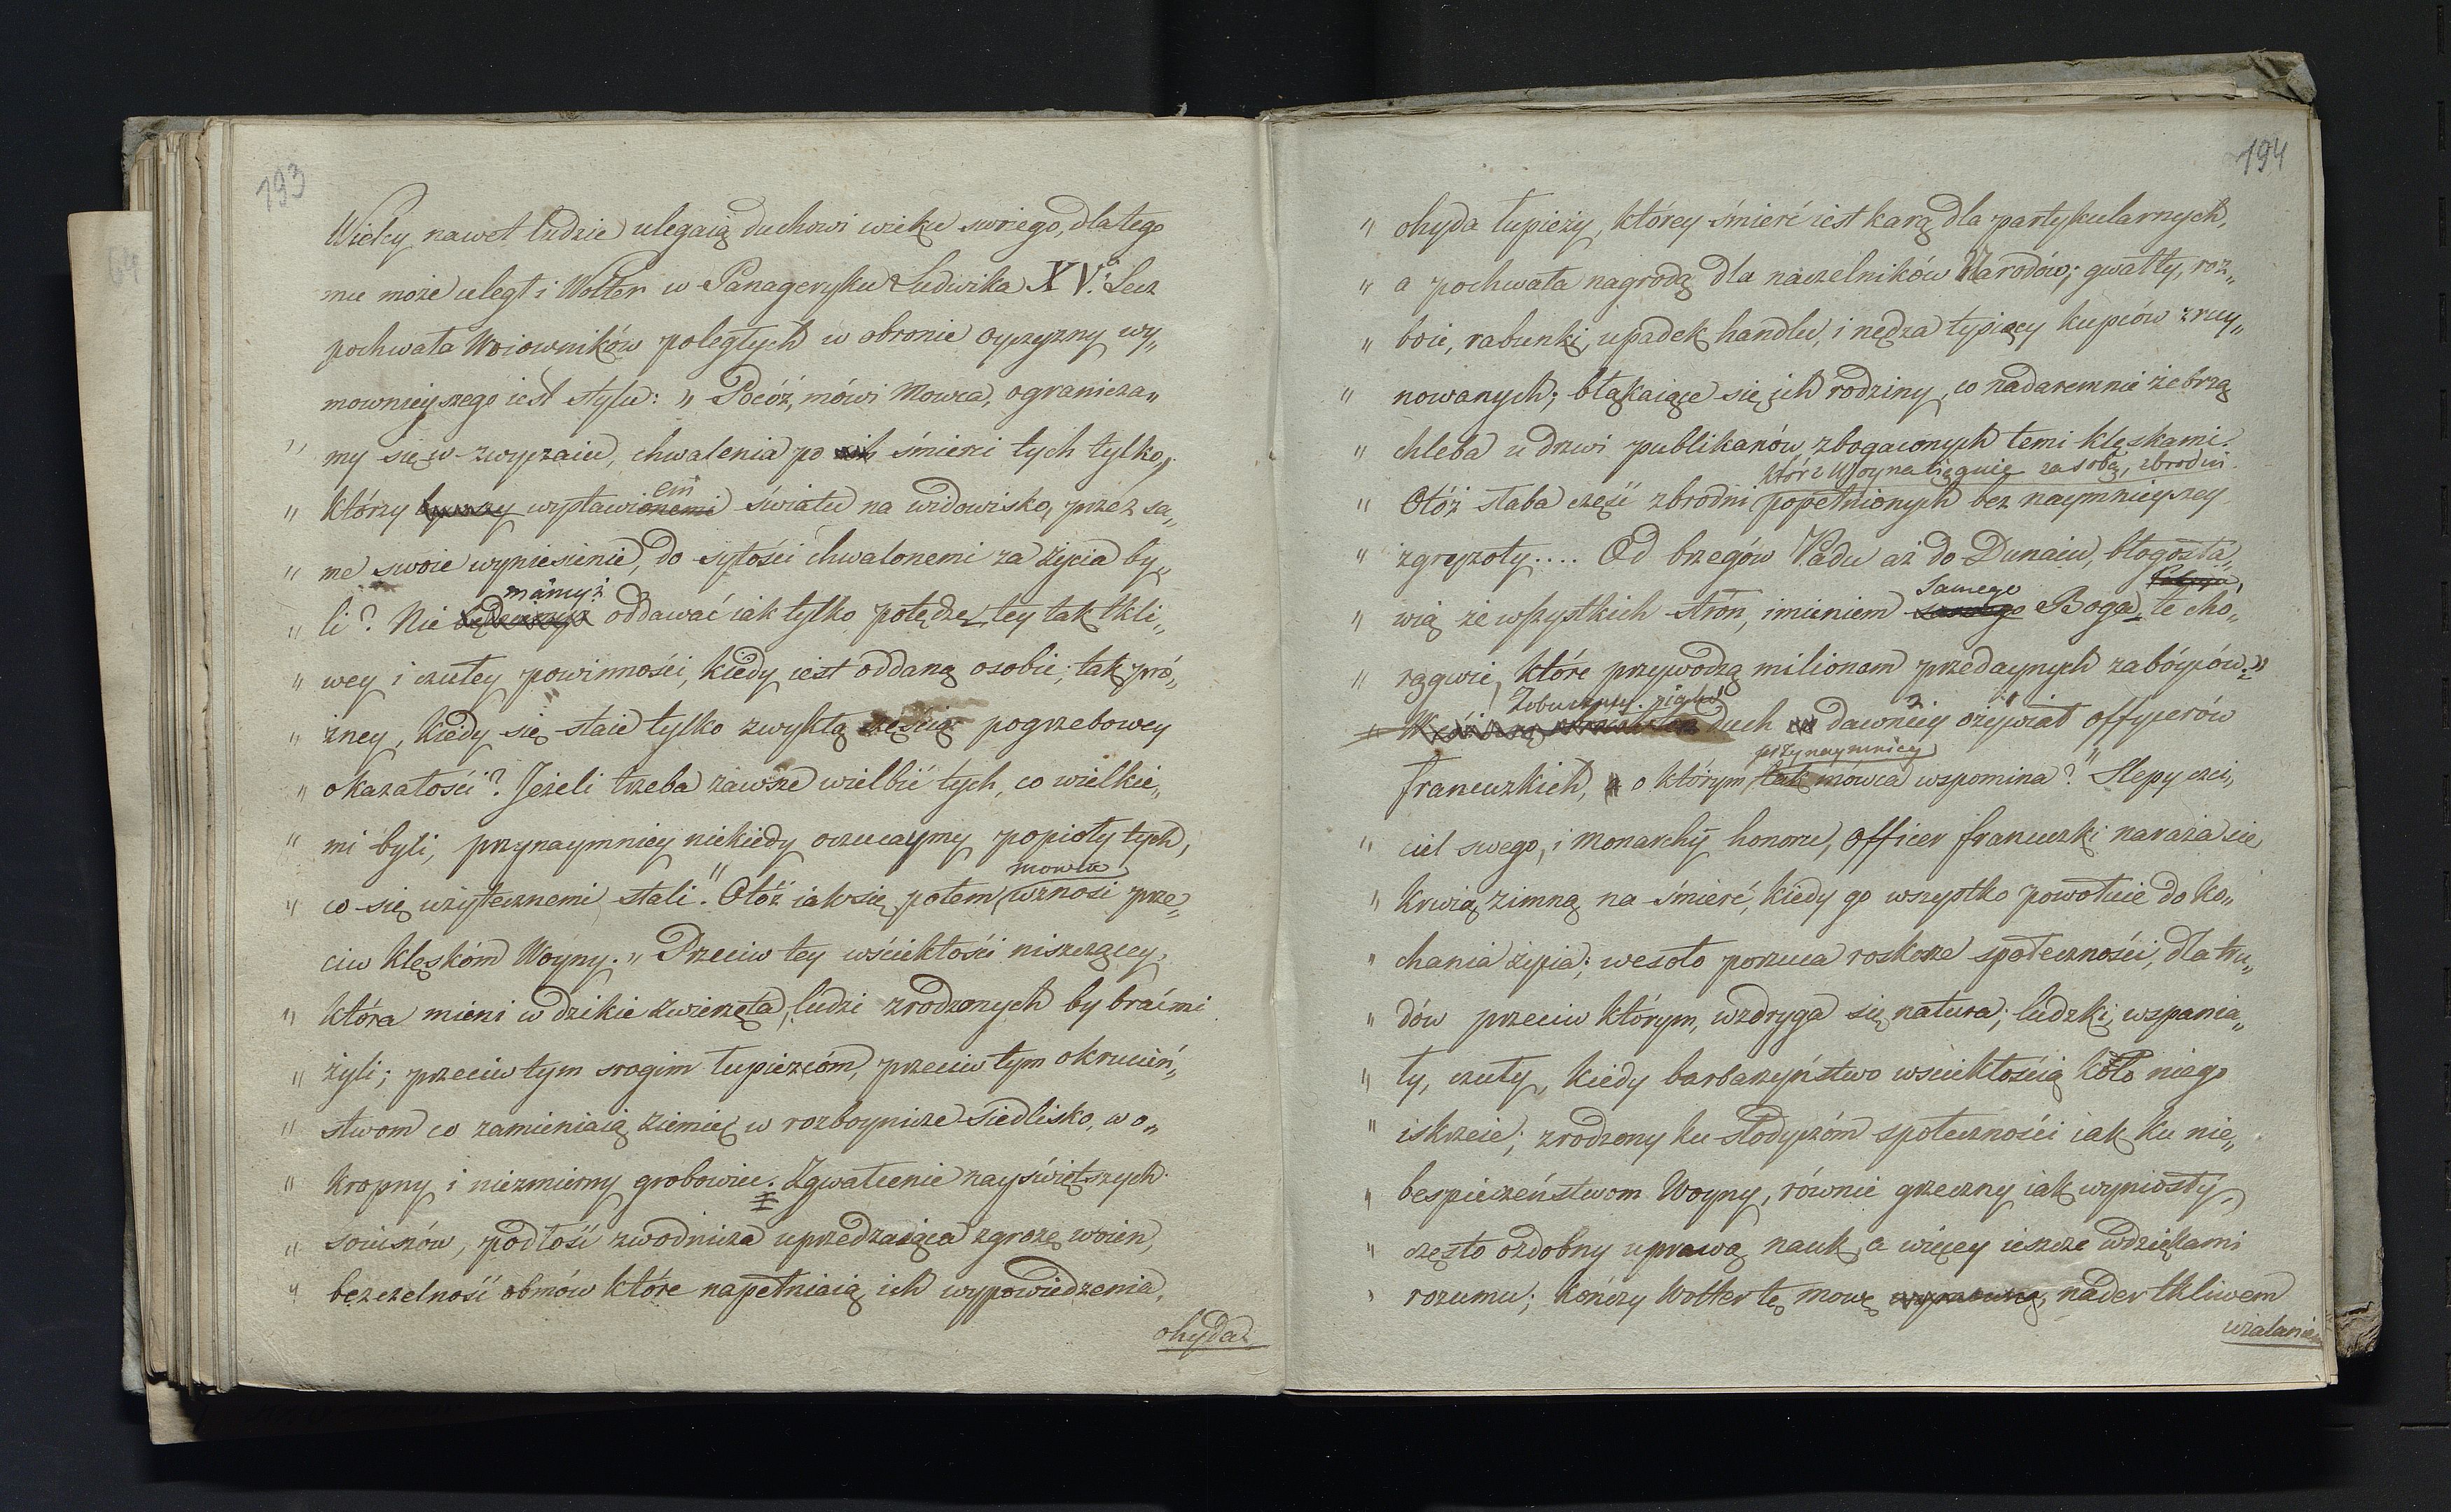 193
Wielcy nawet ludzie ulegaią duchowi wieku swiego, dlatego
mu może uległ i Wolter w Panageryku Ludwika XV.º Lecz
pochwała Woiowników poległych w obronie oyczyzny wy„
mownieyszego iest stylu: „ Pocóż, mówi Mowca, ogranicza„
„ my się w zwyczaiu, chwalenia po śmierci tych tylko,
em
„ którzy wystawionemi światu na widowisko, przez sa„
„ me swoie wyniesienie, do sytości chwalonemi za życia by„
mamyż
„ li? Nie oddawać iak tylko potędze tey tak tkli„
„ wey i czutey powinności, kiedy iest oddaną osobie; tak pró„
„ żney, kiedy się staie tylko zwykłą częścią pogrzebowey
„ okazałości? Jeżeli trzeba zawsze wielbić tych, co wielkie„
„ mi byli, przynaymniey niekiedy oczucaymy popioły tych,
mowca
„ co się użytecznemi stali." Otóż iak się potem wznosi prze„
ciw klęskóm Woyny. „ Przeciw tey wściekłości niszczącey,
„ która mieni w dzikie zwierzęta, ludzi zrodzonych by braćmi
„ żyli; przeciw tym srogim łupiezcóm, przeciw tym okrucień„
„ stwom co zamieniaią ziemię w rozboynicze siedlisko, w o„
„ kropny i niezmierny grobowiec. Zgwałcenie nayświętszych
„ soiuszów, podłość zwodnicza uprzedzaiąca zgrozę woien,
„ bezczelność obmów które napełniaią ich wypowiedzenia,
ohyda
194
„ ohyda łupieży, którey śmierć iest karą dla partykularnych,
„ a pochwała nagrodą dla naczelników Narodów; gwałty, roz„
„ boie, rabunki, upadek handlu, i nędza tysiący kupców zruy„
„ nowanych; błąkaiące się ich rodziny, co nadaremnie żebrzą
„ chleba u drzwi publikanów zbogaconych temi klęskami.
które Woyna ciągnie za sobą, zbrodni
„ Otóż słaba część zbrodni popełnionych bez naymnieyszey
„ zgryzoty.... Od brzegów Padu aż do Dunaiu, błogosła„
Samego
„ wią ze wszystkich stron, imieniem samego Boga, te cho„
„ rągwie, które przywodzą milionom przedaynych zabóyców."
Zobaczmy iaki
duch dawniey ożywiał officerów
przynaymniey
francuzkich, o którym tak mówca wspomina? „ Slepy czci„
„ ciel swego, i Monarchy honoru, officer francuzki naraża się
„ krwią zimną na śmierć, kiedy go wszystko powołuie do ko„
„ chania życia; wesoło porzuca roskosze społeczności, dla tru„
„ dów przeciw którym, wzdryga się natura; ludzki, wspania„
„ ły, czuły, kiedy barbarzyństwo wściekłością koło niego
„ iskrzeie; zrodzony ku słodyczóm społeczności iak ku nie„
„ bespieczeństwom Woyny, równie grzeczny iak wyniosły,
„ często ozdobny uprawą nauk, a więcey ieszcze wdziękami
„ rozumu; kończy Wolter tę mowę nader tkliwem
użalaniem